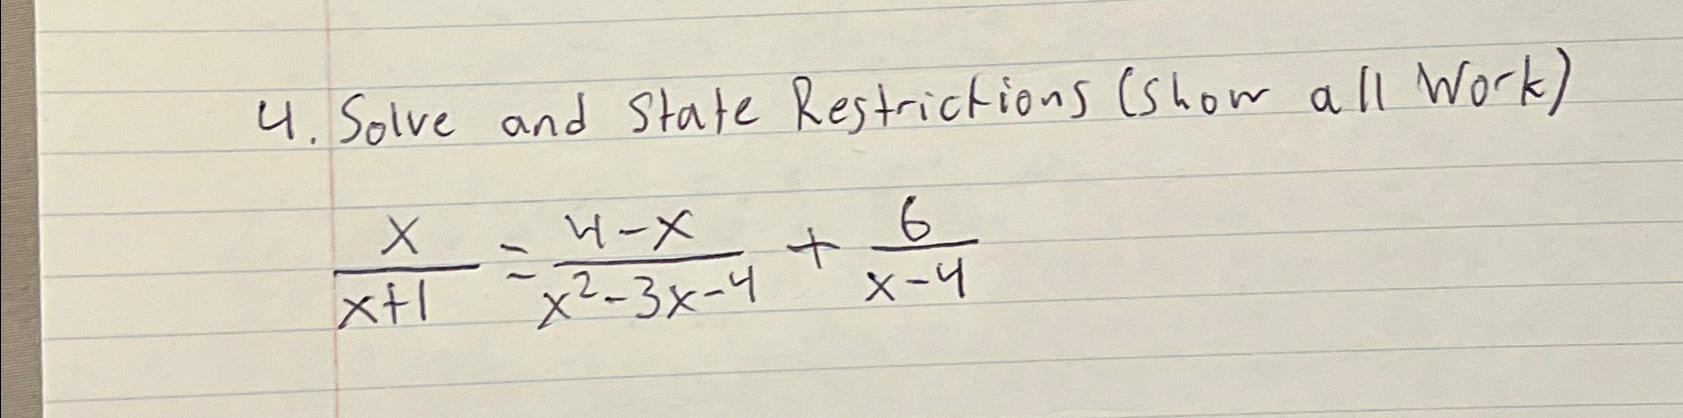 4. Solve and State Restrictions (show all Work)
x/(x+1) = (4-x)/(x²-3x-4) + 6/(x-4)